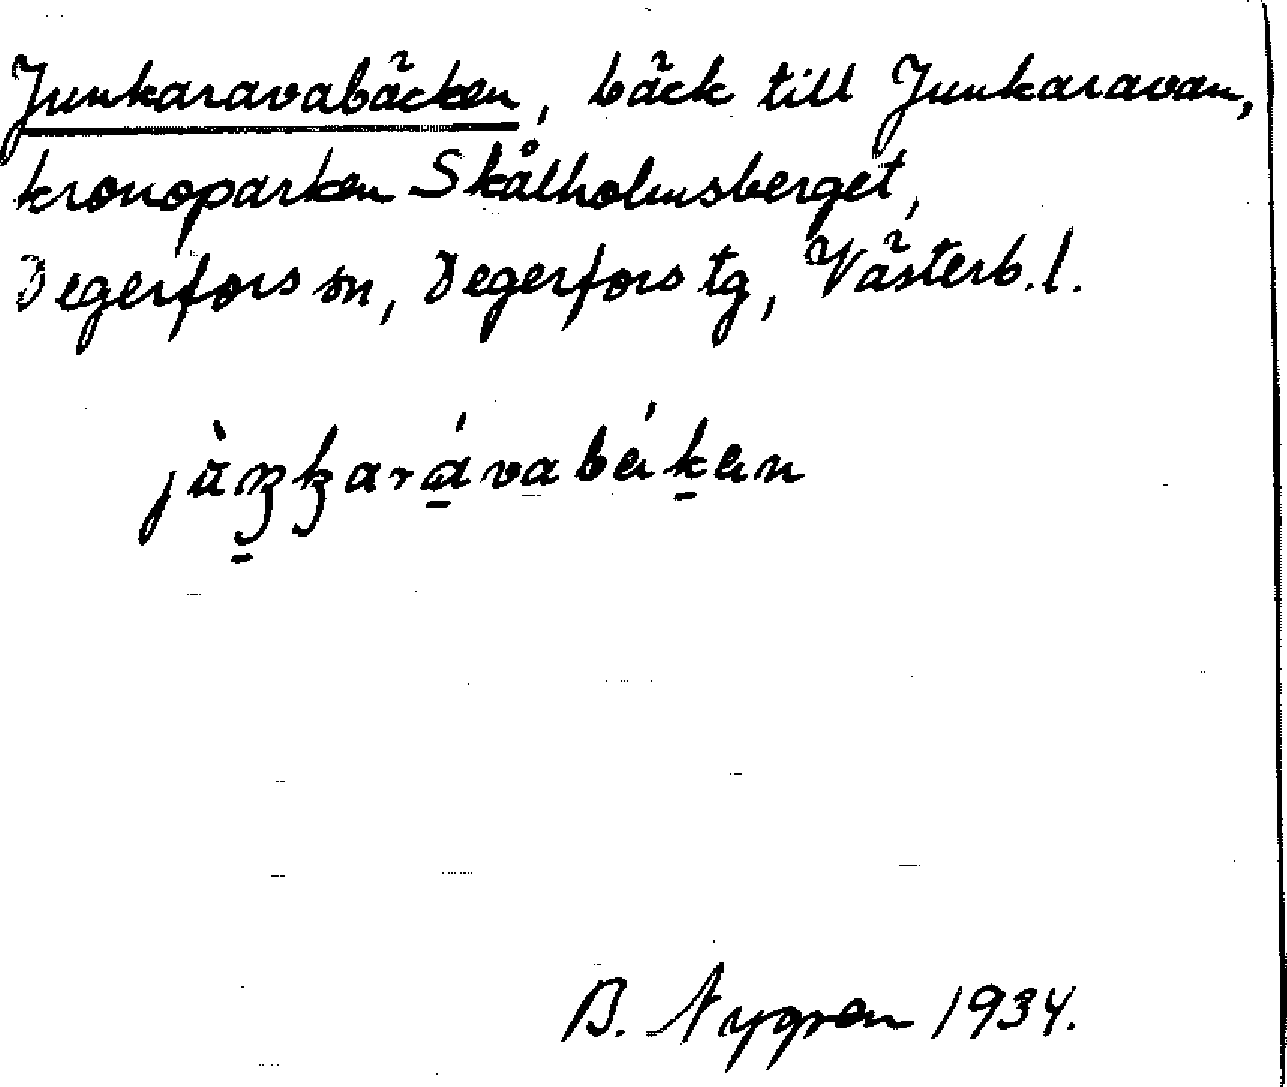 Junkaravabäcken, bäck till Junkaravan,
kronoparken Skålholmsberget,
Degerfors sn, Degerfors tg, Västerb. l.
B. Nygren 1934.